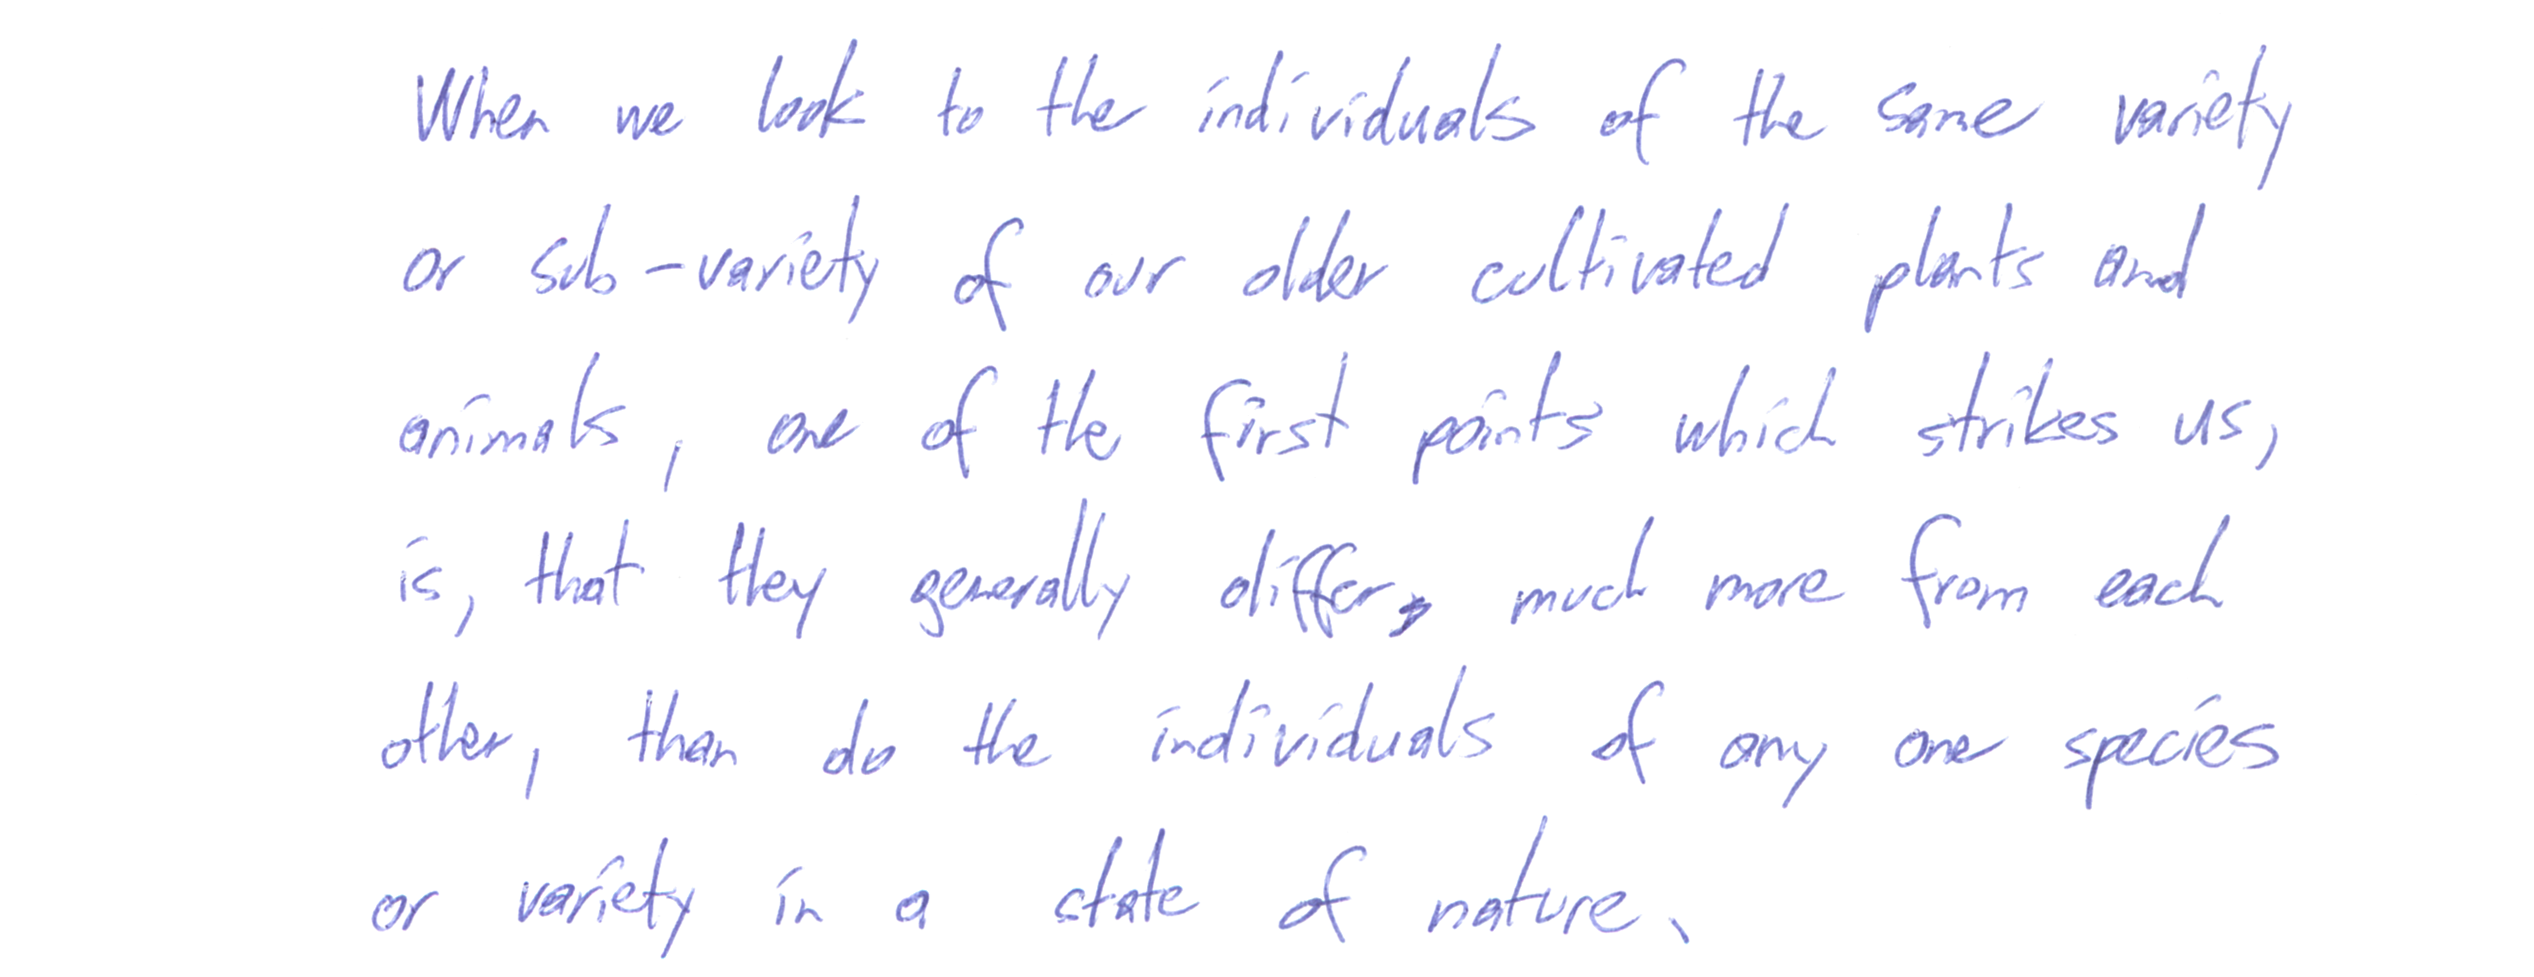 When we look to the individuals of the same variety
or sub-variety of our older cultivated plants and
animals, one of the first points which strikes us,
is, that they generally differ, much more from each
other, than do the individuals of any one species
or variety in a state of nature.